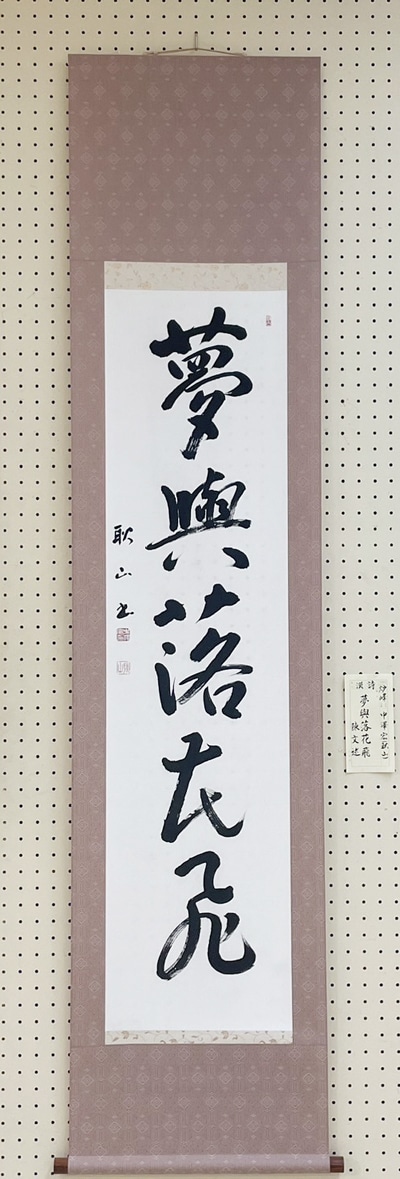 夢與落花飛
耿山書
漢詩
夢與落花飛
張文姬